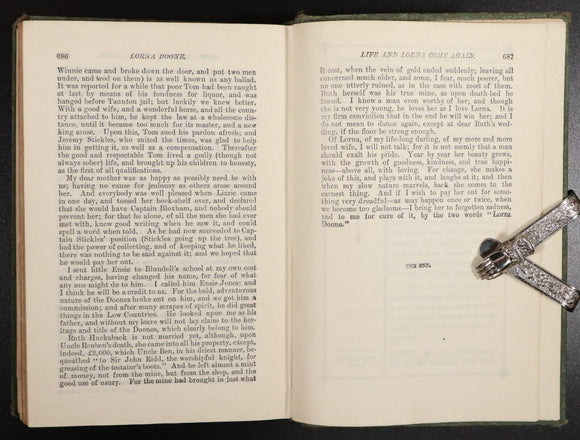 686 LORNA DOONE.
Winnie came and broke down the door, and put two men
under, and trod on them) is as well known as any ballad.
It was reported for a while that poor Tom had been caught
at last, by means of his fondness for liquor, and was
hanged before Taunton jail; but luckily we knew better.
With a good wife, and a wonderful horse, and all the coun-
try attached to him, he kept the law at a wholesome dis-
tance, until it became too much for its master; and a new
king arose. Upon this, Tom sued his pardon afresh; and
Jeremy Stickles, who suited the times, was glad to help
him in getting it, as well as a compensation. Thereafter
the good and respectable Tom lived a godly (though not
always sober) life, and brought up his children to honesty,
as the first of all qualifications.
My dear mother was as happy as possibly need be with
us; having no cause for jealousy as others arose around
her. And everybody was well pleased when Lizzie came
in one day, and tossed her book-shelf over, and declared
that she would have Captain Bloxham, and nobody should
prevent her; for that he alone, of all the men she had ever
met with, knew good writing when he saw it, and could
spell a word when told. As he had now succeeded to Cap-
tain Stickles' position (Stickles going up the tree), and
had the power of collecting, and of keeping what he liked,
there was nothing to be said against it; and we hoped that
he would pay her out.
I sent little Ensie to Blundell's school at my own cost
and charges, having changed his name, for fear of what
any one might do to him. I called him Ensie Jones; and
I think he will be a credit to us. For the bold, adventurous
nature of the Doones broke out on him, and we got him a
commission; and after many scrapes of spirit, he did great
things in the Low Countries. He looked upon me as his
father, and without my leave will not lay claim to the her-
itage and title of the Doones, which clearly belong to him.
Ruth Huckaback is not married yet, although, upon
Uncle Reuben's death, she came into all his property, except,
indeed, £2,000, which Uncle Ben, in his driest manner, be-
queathed "to Sir John Ridd, the worshipful knight, for
greasing of the testator's boots." And he left almost a mint
of money, not from the mine, but from the shop, and the
good use of usury. For the mine had brought in just what
LIFE AND LORNA COME AGAIN. 687
it cost, when the vein of gold ended suddenly; leaving all
concerned much older, and some, I fear, much poorer, but
no one utterly ruined, as in the case with most of them.
Ruth herself was his true mine, as upon death-bed he
found. I know a man even worthy of her; and though
she is not very young, he loves her as I love Lorna. It is
my firm conviction that in the end he will win her; and I
do not mean to dance again, except at dear Ruth's wed-
ding, if the floor be strong enough.
Of Lorna, of my life-long darling, of my more and more
loved wife, I will not talk; for it is not seemly that a man
should exalt his pride. Year by year her beauty grows,
with the growth of goodness, kindness, and true happi-
ness—above all, with loving. For change, she makes a
joke of this, and plays with it, and laughs at it; and then
when my slow nature marvels, back she comes to the
earnest thing. And if I wish to pay her out for some-
thing very dreadful—as may happen once or twice, when
we become too gladsome—I bring her to forgotten sadness,
and to me for cure of it, by the two words "Lorna
Doone."
THE END.